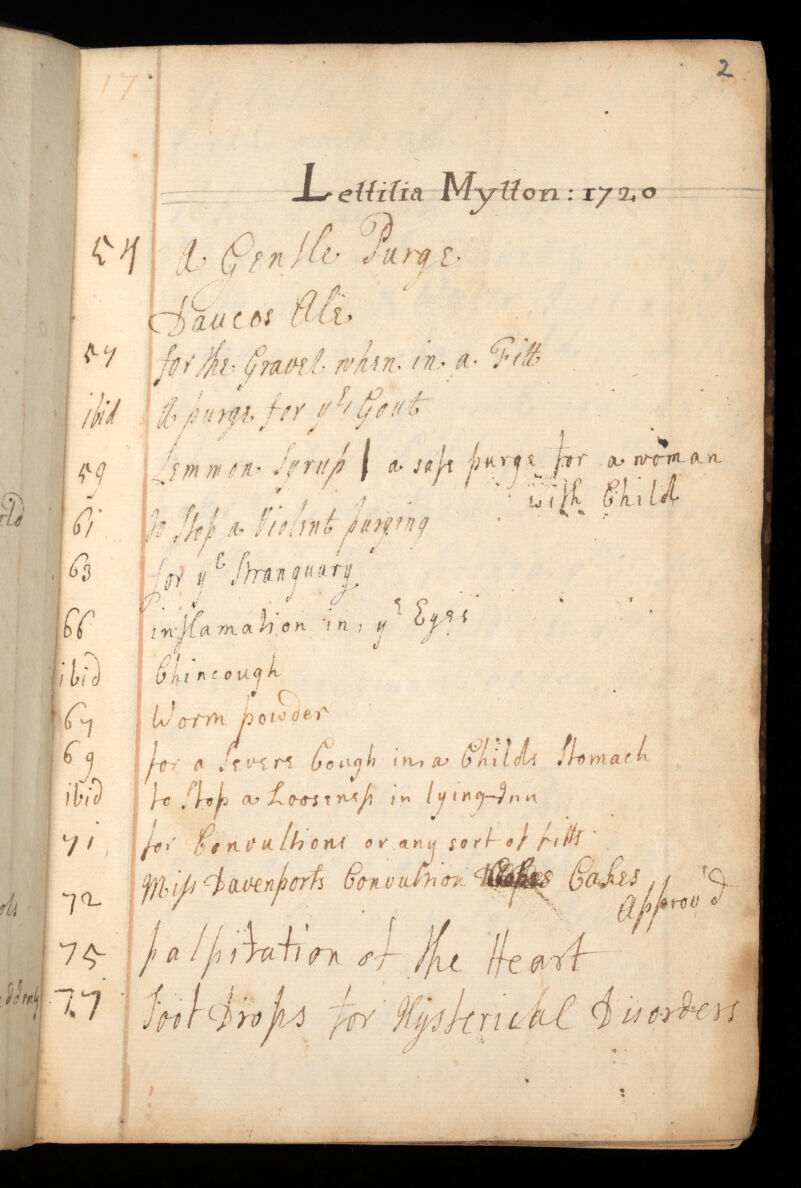 17
2
Lettitia Mytton: 1720
54 A Gentle Purge
Daucos Ale
57 for the Gravel when in a Fitt
ibid A purge for yᵉ Gout
59 Lemmon Syrup | a safe purge for a woman
with Child
61 to Stop a Violent purging
63 for yᵉ Stranguary
66 inflamation in, yᵉ Eyes
ibid Chincough
67 Worm powder
69 for a Severe Cough in a Childs Stomach
ibid to Stop a Looseness in lying-Inn
71 for Convultions or any sort of fitts
72 Miss Davenports Convultion Cakes
Approv'd
75 palpitation of the Heart
77 Soot Drops for Hysterical Disorders